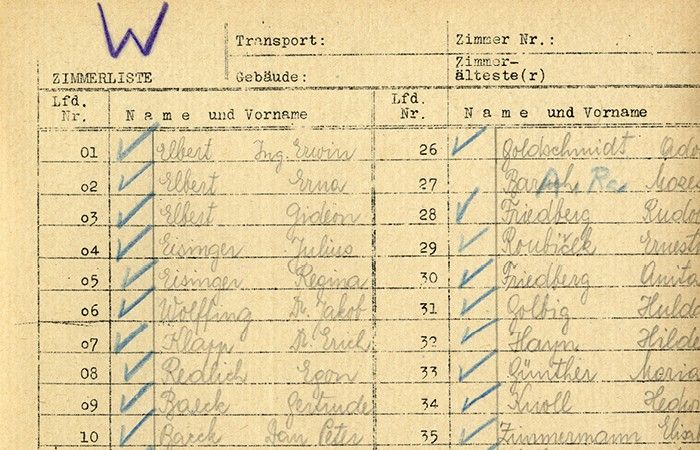 W
Transport: Zimmer Nr.:
Zimmer-
ZIMMERLISTE Gebäude: älteste(r)
Lfd. Nr. Name und Vorname Lfd. Nr. Name und Vorname
01 Elbert Ing. Erwin 26 Goldschmidt Ado
02 Elbert Erna 27
03 Elbert Gideon 28 Friedberg Rud
04 Eisinger Julius 29 Roubiček Ernest
05 Eisinger Regina 30 Friedberg Anita
06 Wolffing Dr. Jakob 31 Golbig Hulda
07 Klapp Dr. Erich 32 Haym Hilde
08 Redlich Egon 33 Günther Maria
09 Baeck Gertrude 34 Knoll Hedw
10 Baeck Jan Peter 35 Zimmermann Elisa